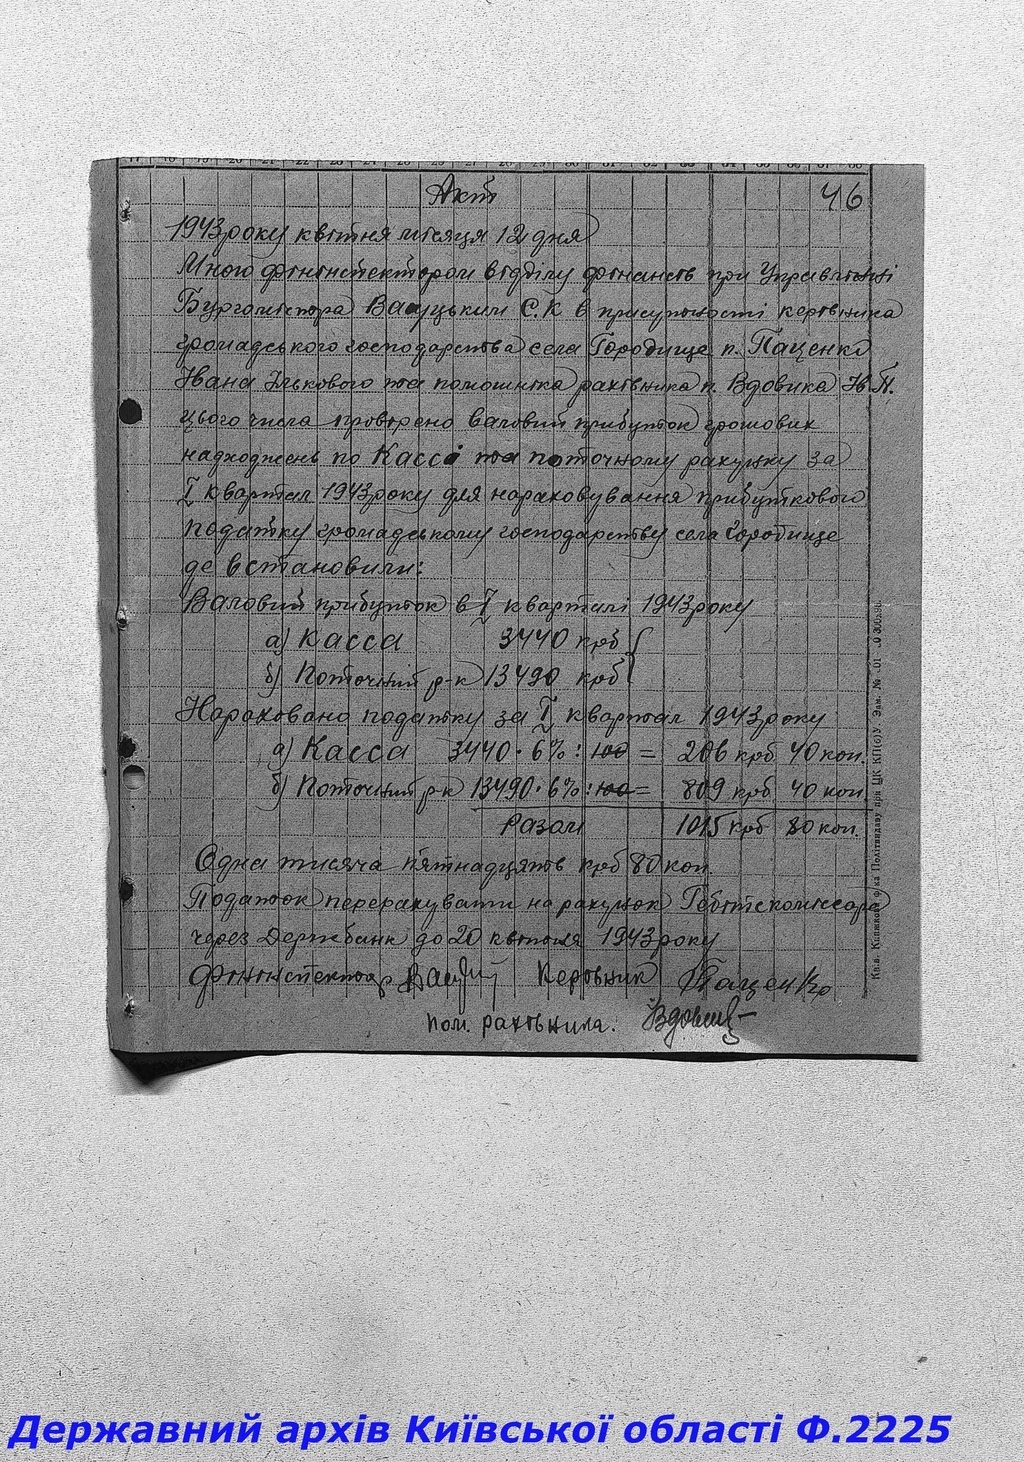 17 18 19 20 21 22 23 24 25 26 27 28 29 30 31 32 33 34 35 36 37 38
46
Акт
1943 року квітня місяця 12 дня
Мною фінінспектором відділу фінансів при Управлінні
Бургомістра С.К в присутності керівника
громадського господарства села Городище п. Паценко
Івана Ількового та помошніка рахівника п. Вдовика Ів. П.
цього числа провірено валовий прибуток грошових
надходжень по Кассі та поточному рахунку за
I квартал 1943 року для нараховування прибуткового
податку громадському господарству села Городище
де встановили:
Валовий прибуток в I кварталі 1943 року
а) Касса 3440 крб
б) Поточний р-к 13490 крб
Нараховано податку за I квартал 1943 року
а) Касса 3440 · 6% : 100 = 206 крб 40 коп.
б) Поточний р-к 13490 · 6% : 100 = 809 крб 40 коп
Разом 1015 крб 80 коп.
Одна тисяча пятнадцять крб 80 коп
Податок перерахувати на рахунок Гебітскомісара
через Держбанк до 20 квітня 1943 року
Фінінспектор Керовник Паценко
пом. рахівника. Вдовик
Київ. Книжкова ф-ка Політвидаву при ЦК КП(б)У. Зам. №
Державний архів Київської області Ф.2225